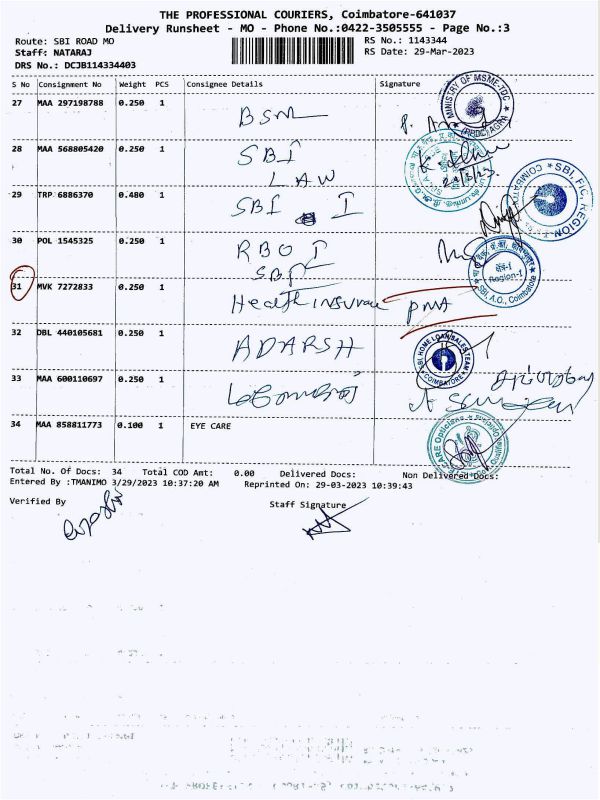 THE PROFESSIONAL COURIERS, Coimbatore-641037
Delivery Runsheet - MO - Phone No.:0422-3505555 - Page No.:3
Route: SBI ROAD MO RS No.: 1143344
Staff: NATARAJ RS Date: 29-Mar-2023
DRS No.: DCJB114334403
S No Consignment No Weight PCS Consignee Details Signature
27 MAA 297198788 0.250 1 BSNL
MINISTRY OF MSME-TDC (PPDC) AGRA
28 MAA 568805420 0.250 1 SBI
LAW
29 TRP 6886370 0.480 1 SBI I
SBI, FIC, REGION-I COIMBATORE
30 POL 1545325 0.250 1 RBO I
SBI
क्षेत्र-I
Region-I
SBI, A.O., Coimbatore
31 MVK 7272833 0.250 1 Health insurance PMA
32 DBL 440105681 0.250 1 ADARSH
SBI HOME LOAN SALES TEAM COIMBATORE
33 MAA 600110697 0.250 1
34 MAA 858811773 0.100 1 EYE CARE
Total No. Of Docs: 34 Total COD Amt: 0.00 Delivered Docs: Non Delivered Docs:
Entered By :TMANIMO 3/29/2023 10:37:20 AM Reprinted On: 29-03-2023 10:39:43
Verified By Staff Signature